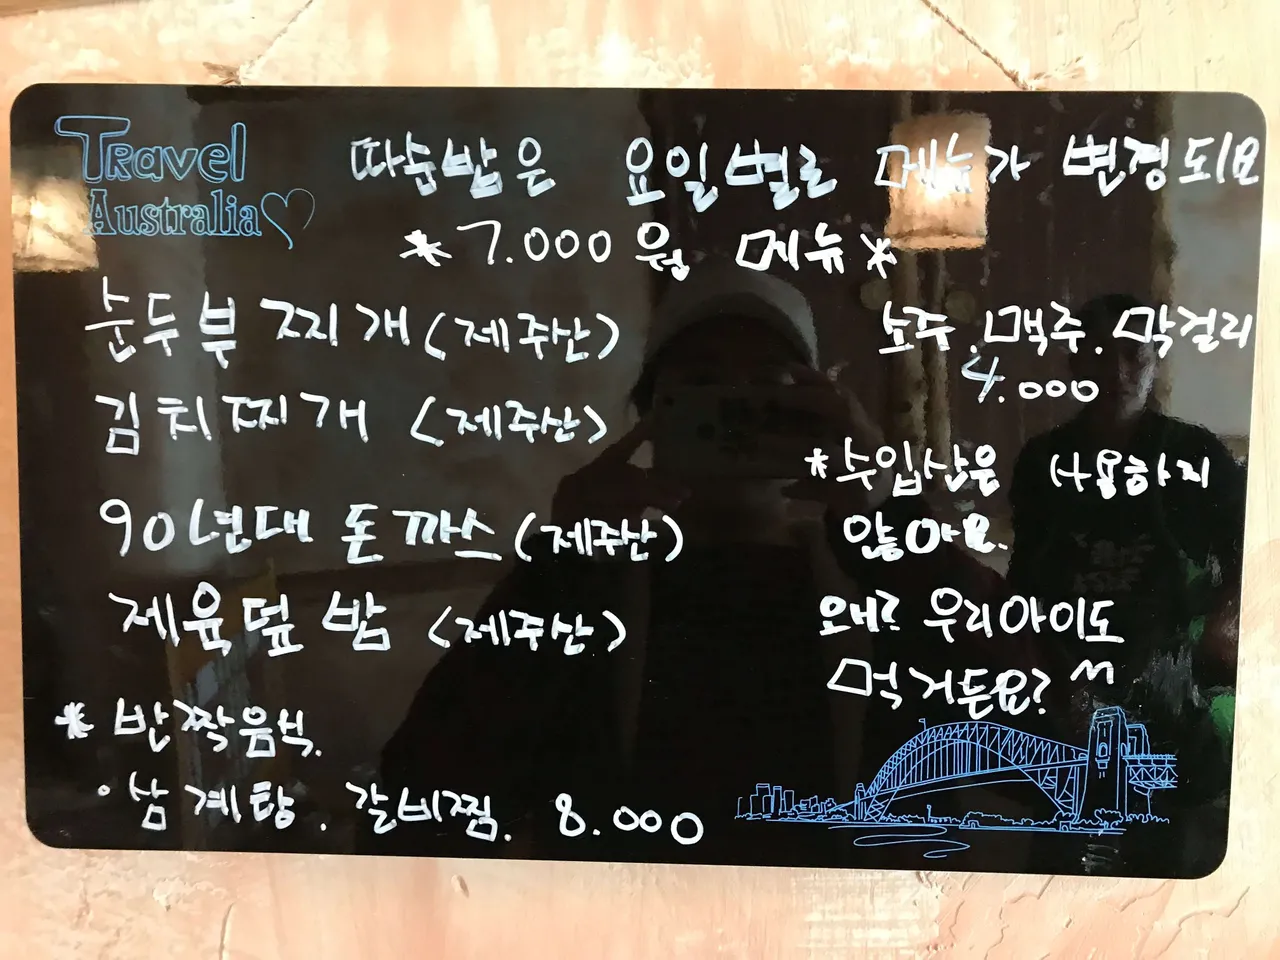 Travel
Australia
따숨밥은 요일별로 메뉴가 변경되요
*7.000원 메뉴*
순두부찌개(제주산)
김치찌개 (제주산)
90년대 돈까스(제주산)
제육덮밥 (제주산)
* 반짝음식.
·삼계탕. 갈비찜. 8.000
소주.맥주.막걸리
4.000
*수입산은 사용하지
않아요.
왜? 우리아이도
먹거든요? ^^